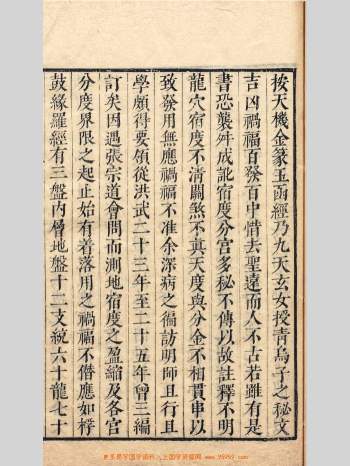 按天機金篆玉函經乃九天玄女授青烏子之秘文
吉凶禍福百發百中惜去聖遠而人不占若雖有是
書恐襲舛成訛宿度分宮多秘不傳以故註釋不明
龍穴宿度不清關煞不真天度與分金不相貫串以
致發用無應禍福不准余深病之徧訪明師且行且
學頗得要領從洪武二十三年至二十五年曾三編
訂矣因遇張宗道會問而測地宿度之盈縮及各宮
分度界限之起止始有着落用之禍福不僭應如桴
鼓緣羅經有三盤內層地盤十二支統六十龍七十